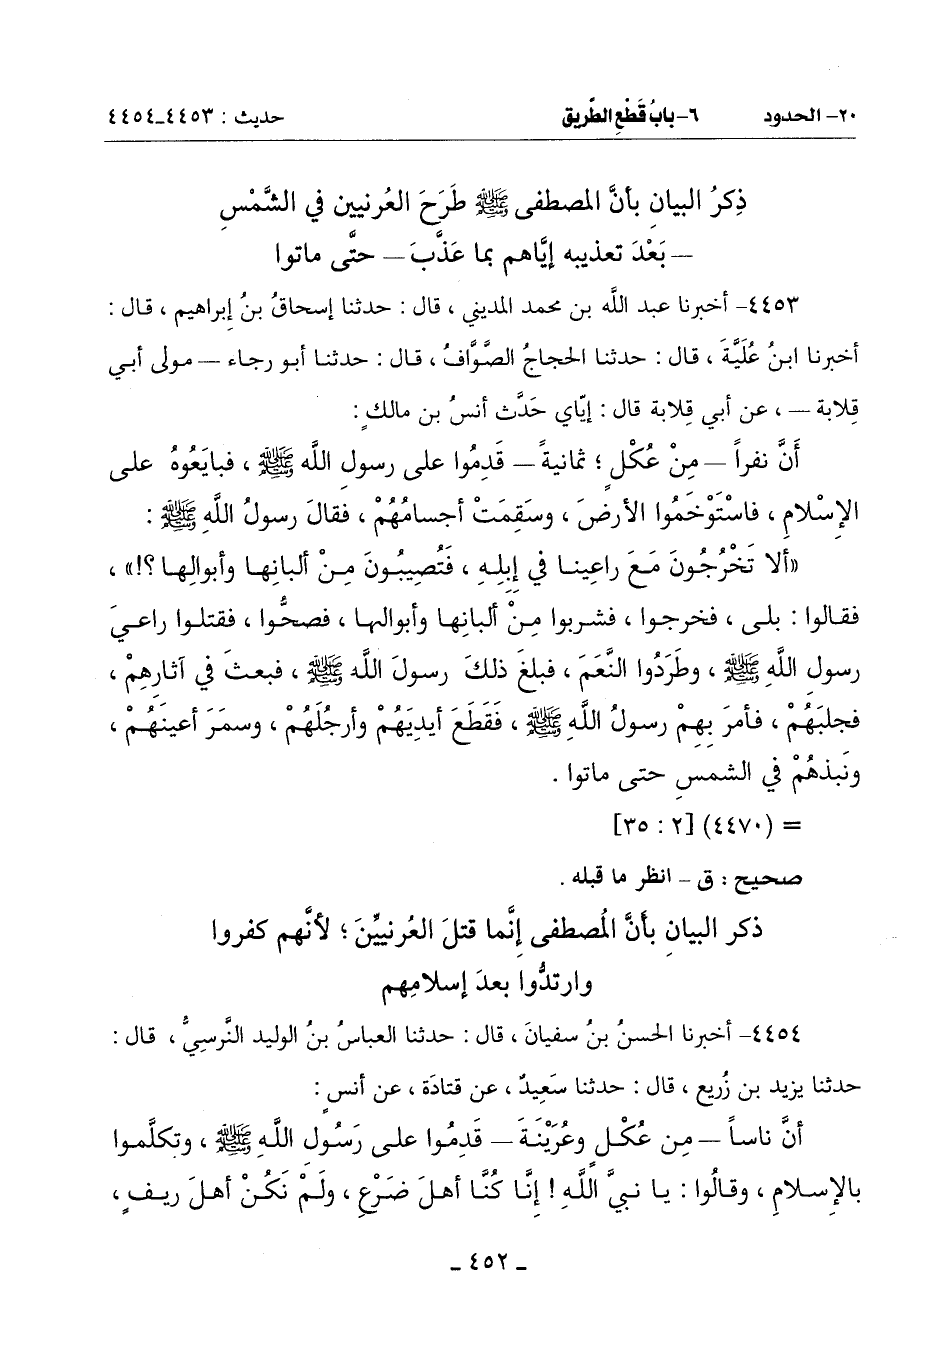 ٢٠- الحدود ٦- بابُ قَطْعِ الطَّريق حديث : ٤٤٥٣-٤٤٥٤
ذِكرُ البيانِ بأنَّ المصطفى ﷺ طَرَحَ العُرنيين في الشَّمْسِ
– بَعْدَ تعذيبه إيَّاهم بما عَذَّبَ – حتَّى ماتوا
٤٤٥٣- أخبرنا عبد اللَّه بن محمد المديني ، قال : حدثنا إسحاقُ بنُ إبراهيم ، قال :
أخبرنا ابنُ عُلَيَّةَ ، قال : حدثنا الحجاجُ الصَّوَّافُ ، قال : حدثنا أبو رجاء – مولى أبي
قِلابة – ، عن أبي قِلابة قال : إيّاي حَدَّث أنسُ بن مالكٍ :
أَنَّ نفراً – مِنْ عُكْلٍ ؛ ثمانيةً – قَدِمُوا على رسولِ اللَّه ﷺ ، فبايَعُوهُ على
الإسْلامِ ، فاسْتَوْخَمُوا الأرضَ ، وسَقِمَتْ أجسامُهُمْ ، فقالَ رسولُ اللَّهِ ﷺ :
«ألا تَخْرُجُونَ مَعَ راعِينا في إبِلِهِ ، فَتُصِيبُونَ مِنْ ألبانِها وأبوالِها ؟!» ،
فقالوا : بلى ، فخرجوا ، فشربوا مِنْ ألبانِها وأبوالها ، فصحُّوا ، فقتلوا راعيَ
رسولِ اللَّهِ ﷺ ، وطَرَدُوا النَّعَمَ ، فبلغَ ذلكَ رسولَ اللَّه ﷺ ، فبعثَ في آثارِهِمْ ،
فجلبَهُمْ ، فأمرَ بِهِمْ رسولُ اللَّهِ ﷺ ، فَقَطَعَ أيديَهُمْ وأرجُلَهُمْ ، وسمَرَ أعينَهُمْ ،
ونَبذهُمْ في الشمسِ حتى ماتوا .
= (٤٤٧٠) [٢ : ٣٥]
صحيح : ق - انظر ما قبله .
ذكر البيانِ بأنَّ المُصطفى إنَّما قتلَ العُرنيِّينَ ؛ لأنَّهم كفروا
وارتدُّوا بعدَ إسلامِهم
٤٤٥٤- أخبرنا الحسنُ بنُ سفيانَ ، قال : حدثنا العباسُ بنُ الوليد النَّرسِيُّ ، قال :
حدثنا يزيد بن زُريع ، قال : حدثنا سَعِيدٌ ، عن قتادَة ، عن أنسٍ :
أنَّ ناساً – مِن عُكْلٍ وعُرَيْنَةَ – قَدِمُوا على رَسُولِ اللَّهِ ﷺ ، وتكلَّموا
بالإسلامِ ، وقالُوا : يا نبيَّ اللَّهِ ! إنَّا كُنَّا أهلَ ضَرْعٍ ، ولَمْ نَكُنْ أهلَ ريفٍ ،
- ٤٥٢ -